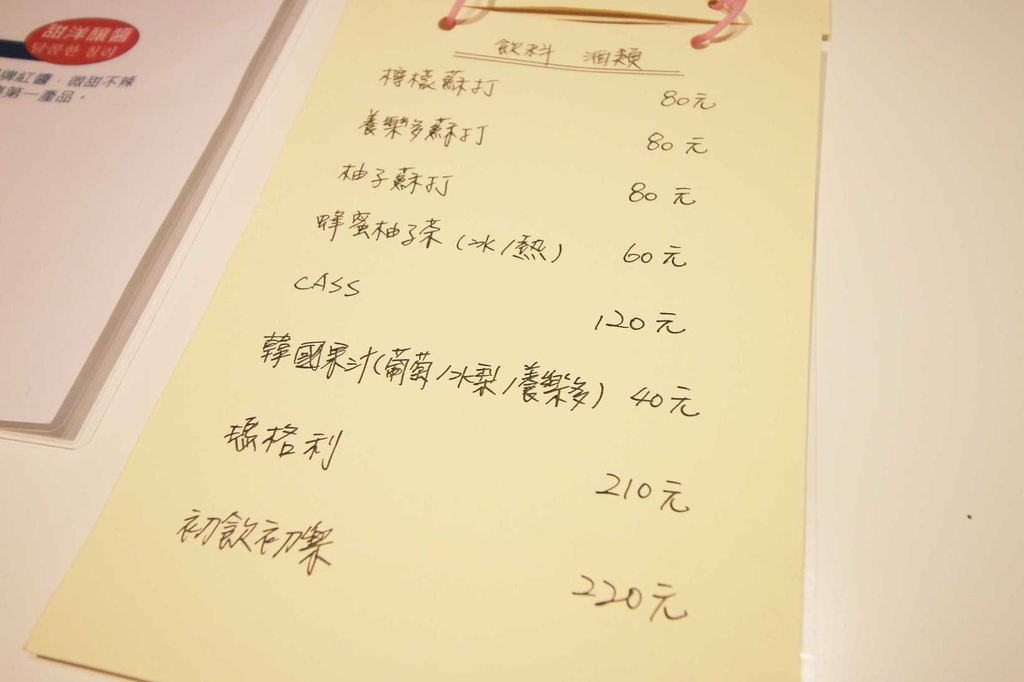 甜洋釀醬
달콤한 칠리
牌紅醬，微甜不辣
第一產品。
飲料 酒類
檸檬蘇打 80元
養樂多蘇打 80元
柚子蘇打 80元
蜂蜜柚子茶(冰/熱) 60元
CASS 120元
韓國果汁(葡萄/水梨/養樂多) 40元
瑪格利 210元
初飲初樂 220元